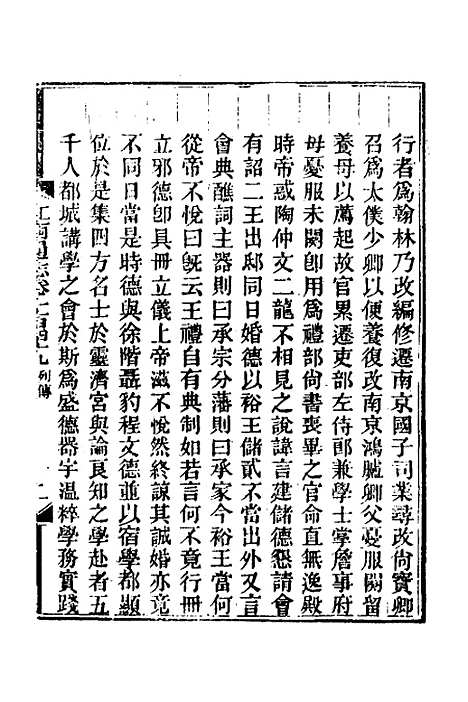 行者為翰林乃改編修遷南京國子司業尋改尚寶卿
召為太僕少卿以便養復改南京鴻臚卿父憂服闋留
養母以薦起故官累遷吏部左侍郎兼學士掌詹事府
母憂服未闋卽用為禮部尚書喪畢之官命直無逸殿
時帝惑陶仲文二龍不相見之說諱言建儲德懇請會
有詔二王出邸同日婚德以裕王儲貳不當出外又言
會典醮詞主器則曰承宗分藩則曰承家今裕王當何
從帝不悅曰旣云王禮自有典制如若言何不竟行冊
立邪德卽具冊立儀上帝滋不悅然終諒其誠婚亦竟
不同日當是時德與徐階聶豹程文德並以宿學都顯
位於是集四方名士於靈濟宮與論良知之學赴者五
千人都城講學之會於斯為盛德器宇溫粹學務實踐
江南通志卷一百四九 列傳